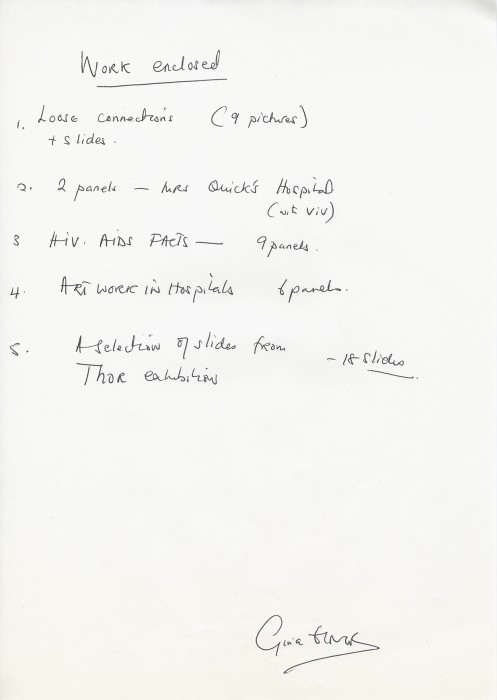 Work enclosed
1. Loose connections (9 pictures)
+ slides.
2. 2 panels — Mrs Quick's Hospital
(wit Viv)
3 HIV. AIDS FACTS — 9 panels.
4. ART WORK IN Hospitals 6 panels.
5. A selection of slides from
Thor exhibition - 18 slides.
Gina